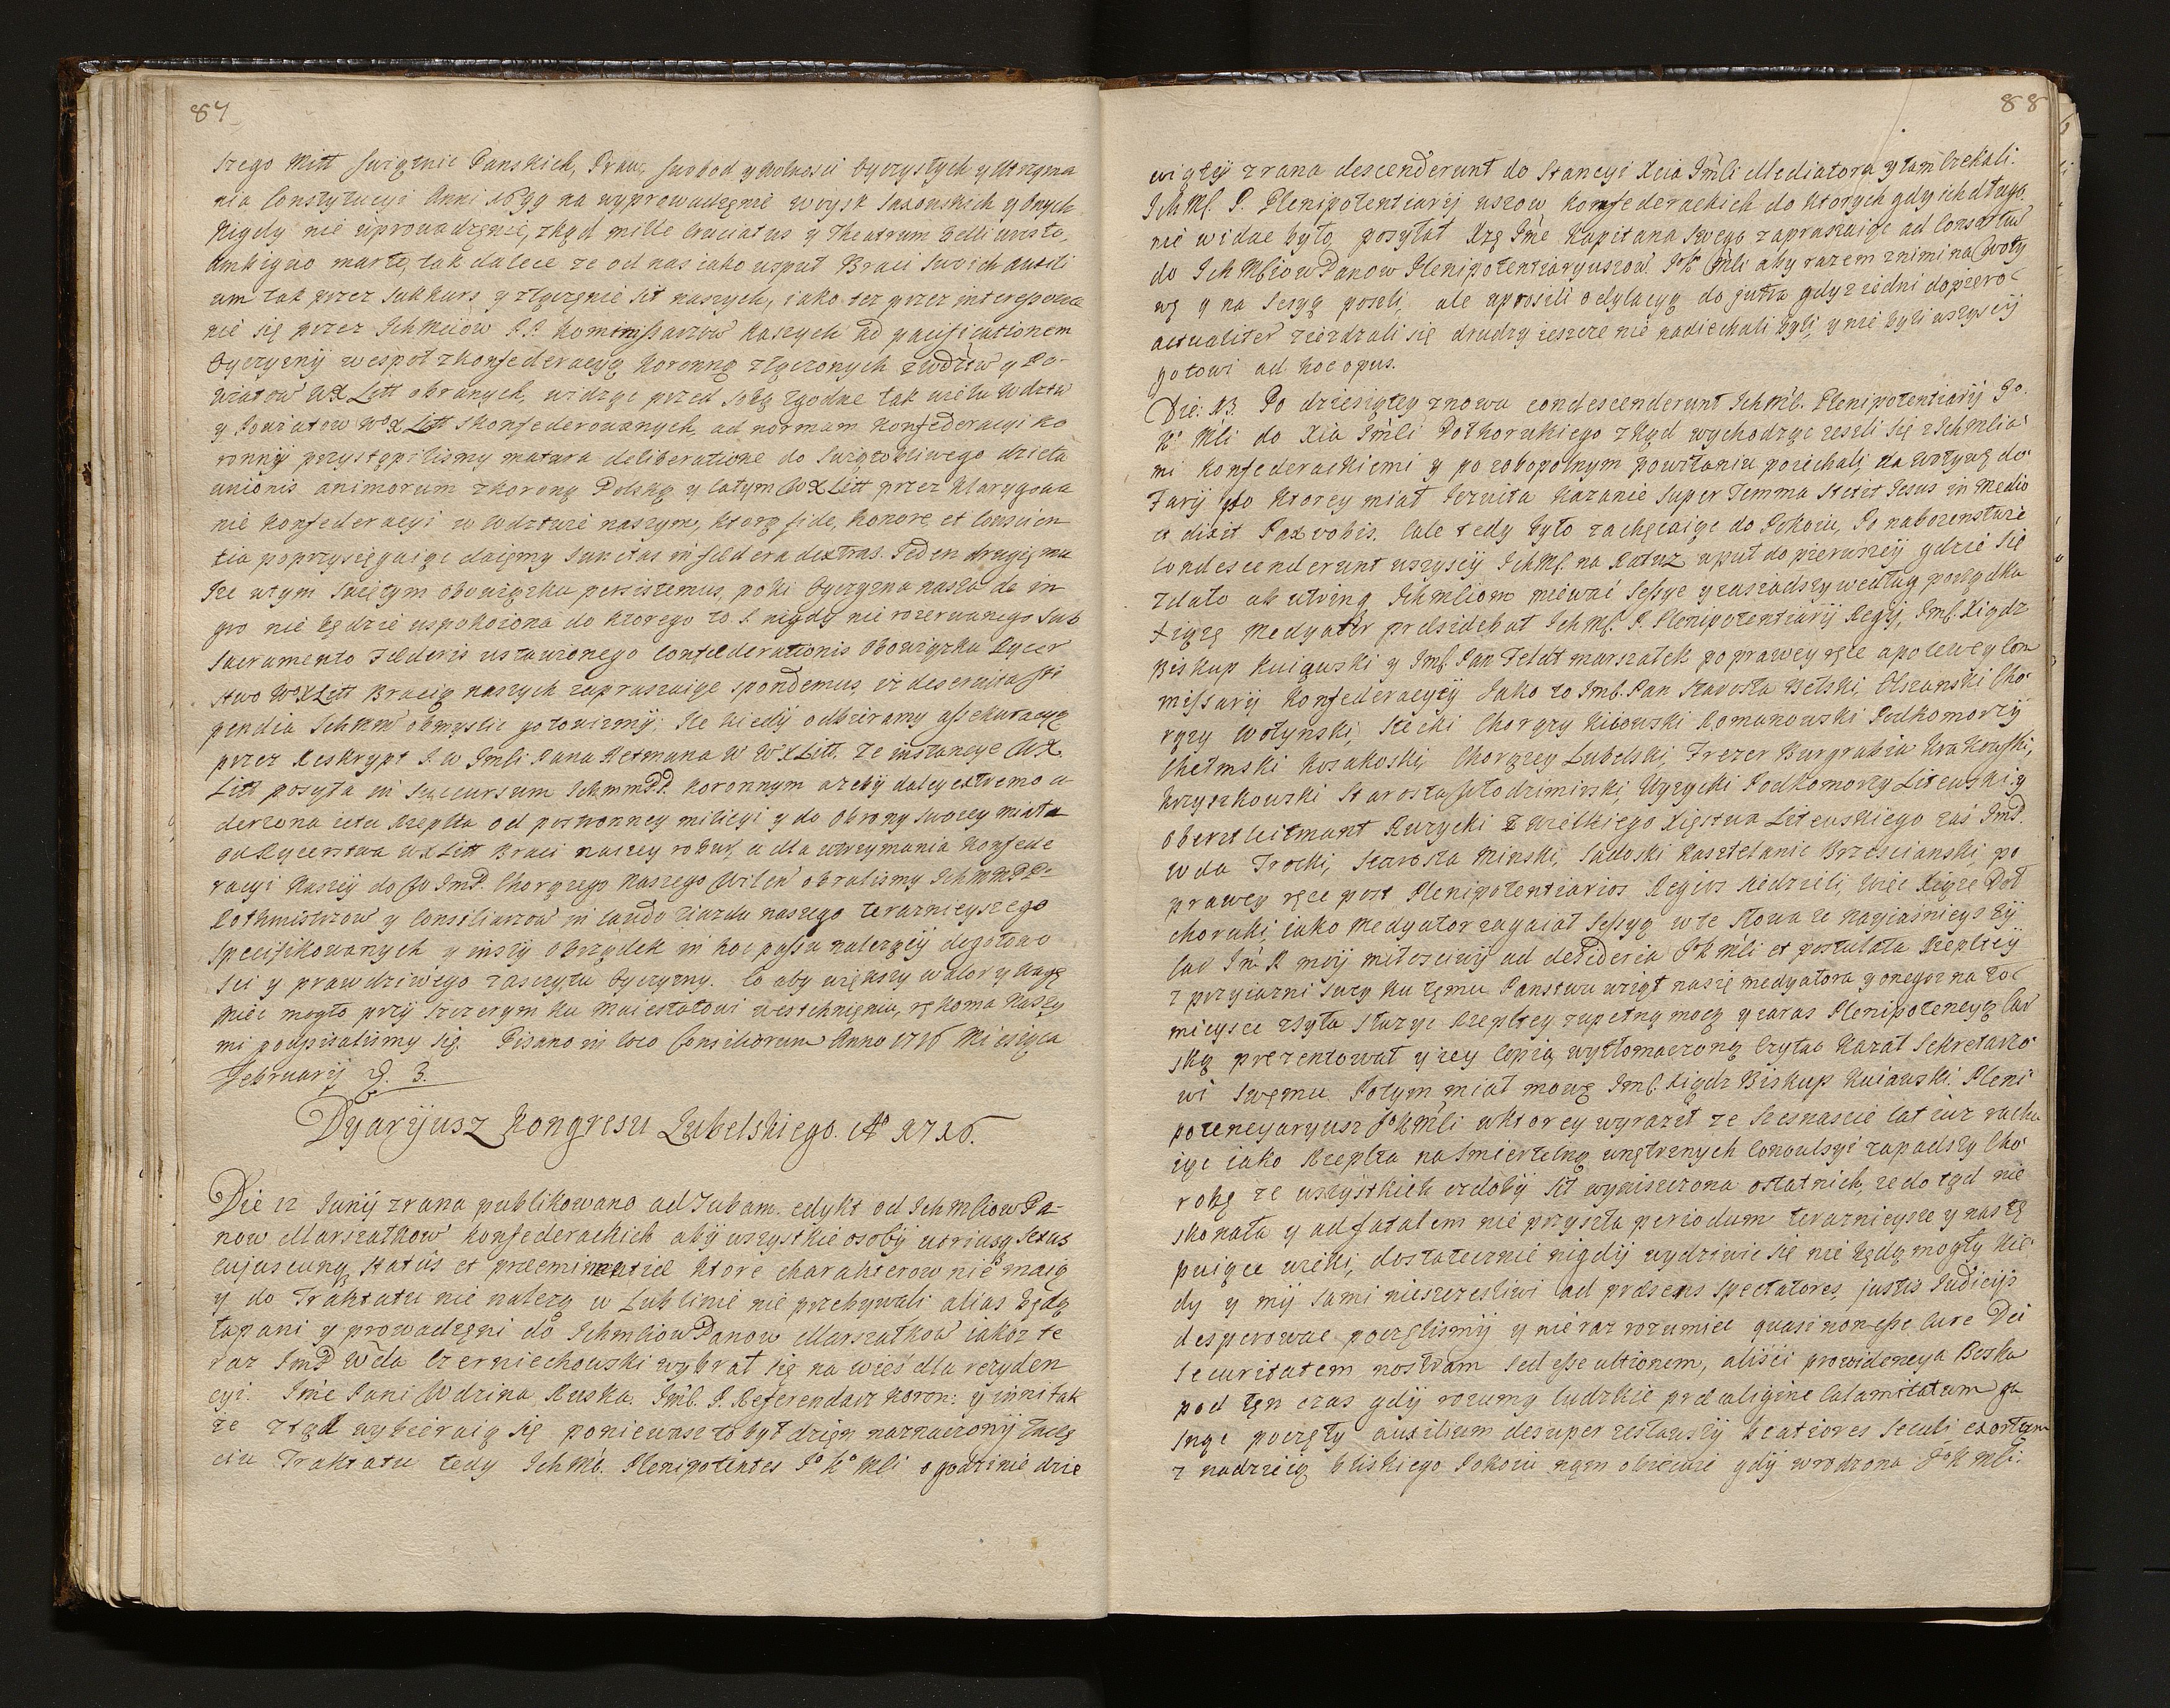 87
szego Mitt swiątnic Panskich, Praw, swobod y Wolnosci Oyczystych y Utrzyma
nia Constytucyi Anni 1699 na wyprowadzęnie woysk Saxonskich y onych
Nigdy nie uprowadzęnie, zkąd mille cruciatus y Theatrum belli
ambiguo marte, tak dalece ze od nas iako usput Braci swoich auxili
um tak przez sukkurs y złączęnie sił naszych, iako tez przez interessowa
nie się przez Ichmciow P.P. Kommissarzow naszych ad pacificationem
Oyczyzny wespoł z Konfederacyą Koronną złączonych z Wdztw y Po-
wiatow WXLitt obranych, widząc przed sobą zgodne tak wielu Wdztw
y Powiatow WoXLitt skonfederowanych, ad normam Konfederacyi Ko
ronnÿ przystąpilismy matura deliberatione do swiątobliwego dzieła
unionis animorum z Koroną Polską y całym WXLitt przez
nie Konfederacyi w Wdztwie naszym, ktorą fide, honore et conscien
tia poprzysięgaiąc daięmy sanctas in fœdera dextras. Jeden drugięmu
Ize wtym swiętym obowiązku persistemus, poki Oyczyzna nasza de in
gro nie będzie uspokoiona do ktorego to S. nigdy nie rozerwanego sub
Sacramento Fœderis ustawionego confœderationis Obowiązku Rycer
stwo WoXLitt Bracią naszych zapraszaiąc spondemus, iz deservita sti
pendia Ichmm obmyslic gotowizmÿ. Ile kiedÿ odbieramy assekuracyą
przez Reskrypt J.W Jmsci Pana Hetmana W WXLitt. Ze instancye WX
Litt posyła in succursum Ichmm PP. Koronnym azebÿ daley extremo u-
derzona ictu Rzeplta od postronney milicyi y do Obrony swoiey miała
od Rycerstwa WXLitt Braci naszey robur, a dla utrzymania Konfede
racyi Naszey do Jo JmP. Chorązego Naszego Wilen obralismy Ichmm PP.
Rothmistrzow y Consiliarzow in laudo ziazdu naszego teraznieyszego
specifikowanych y inszÿ Obrządek in hoc passu nalezącÿ do gotowo
sci y prawdziwego zaszczytu Oyczyzny. Co aby większy walor y wagę
Miec mogło przÿ szczerym ku Maiestatowi westchnięniu, rękoma naszy
mi podpisalismy się. Pisano in loco Consiliorum Anno 1716 Miesiąca
Februarÿ D. 3.
Dyaryjusz Kongresu Lubelskiego. Ao 1716.
Die 12 Junij zrana publikowano ad Tubam edykt od Ichmliow Pa-
now Marszałkow Konfederackich abÿ wszystkie osobÿ utriusq sexus
cujuscunq status et præeminentiæ ktore charakterow nie maią
y do Traktatu nie nalezą w Lublinie nie przebywali alias będą
łapani y prowadzęni do Ichmliow Panow Marszałkow iakoz te
raz JmP Wda Czerniechowski wybrał się na wieś dla rezyden
cyi. Jmc Pani Wdzina Ruska. Jmsc. P. Referendarz Koron: y inni tak
ze ztąd wybieraią się poniewasz to był dzięn naznaczonÿ zaczę
ciu Traktatu tedy Ichmść. Plenipotentes Jo Ko Mści o godzinie dzie
88
wiątÿ zrana descenderunt do Stancyi Xcia Jmsci Mediatora y tam czekali.
IchMś. P. Plenipotentiarÿ uszow Konfederackich do ktorych gdy ich długo
nie widac było, posyłał Xzę Jmc Kapitana swego zapraszaiąc ad consessum
do IchMściow Panow Plenipotentiaryuszow. JoK Mści aby razem z nimi na Woty
wę y na sessyą poszli, ale uprosili o dylacyą do jutra gdyz iedni dopiero
actualiter ziezdzali się drudzy ieszcze nie nadiechali byli, y nie byli wszyscÿ
gotowi ad hoc opus.
Die: 13. Po dziesiątey znowu condescenderunt Ichmść. Plenipotentiarÿ Jo.
Ko Mści do Xia Jmści Dołhorukiego zkąd wychodząc zeszli się z Ichmścia
mi Konfederackiemi y po zobopolnym powitaniu poiechali na Wotywę do
Farÿ po ktorey miał Jezuita Kazanie super Temma Stetit Jesus in Medio
et dixit Pax vobis. Cale tedy było zachęcaiąc do Pokoiu, Po nabozenstwie
condescenderunt wszyscÿ IchMś. na Ratuz aput do pierwszeÿ gdzie się
zdało ab utrinq Ichmściom miewać sessye y zasiadszy według porządku
Xiązę Medyator præsidebat IchMś. P. Plenipotentiarÿ Regÿ, Jmś. Xiądz
Biskup Kuiawski y Jmś. Pan Feldt marszałek po prawey ręce a po lewey Com
missarÿ Konfederacyÿ Jako to Jmś. Pan Starosta Bełski, Olszanski Cho
rązy Wołynski, Stecki Chorązy Kiiowski Romanowski Podkomorzÿ
Chełmski Kosakoski Chorązey Lubelski, Frezer Burgrabia Krakowski,
Krzyszkowski Starosta Włodzimirski, Uzycki Podkomorzy Litewski y
Obersztleitmant Ruzycki z Wielkiego Xięstwa Litewskiego zaś JmP.
Wda Trocki, Starosta Minski, Sadoski Kasztelanic Brzescianski po
prawey ręce post Plenipotentiarios Regios siedzieli, więc Xiąze Doł
horuki, iako Medyator zagaiał sessyą w te słowa ze Nayiasnieyszÿ
Car Jm R moÿ miłosciwÿ ad desideria JK Mści et postulata Rzepltey
z przyiazni swey ku tęmu Panstwu wziął na się medyatora y onegoz na to
mieysce zsyła słuzyc Rzepltey zupełną mocą y zaras Plenipotencyą Car
ską prezentował y iey copią wytłomaczoną czytac kazał Sekretarzo
wi swęmu. Potym miał mowę Jmś. Xiądz Biskup Kuiawski. Pleni
potencyaryusz JoKMści w ktorey wyrazał ze szesnascie lat iuz rachu
iąc iako Rzeplta na smiertelną wnętrznych convulsyi zapadszy Cho
robę ze wszystkich ozdobÿ sił wyniszczona ostatnich, ze do tąd nie
skonała y ad fatalem nie przyszła periodum teraznieysze y nastę
puiące wieki, dostatecznie nigdÿ wydziwic się nie będą mogły. Kie
dy y mÿ sami nieszczesliwi ad præsens spectatores, justis Judicÿs
desperowac poczęlismÿ y nie raz rozumiec quasi non esse curæ Dei
securitatem nostram sed esse ultionem, alisci prowidencya Boska
pod tęn czas gdÿ rozumy ludzkie præ caligine calamitatum ga
snąc poczęły auxilium desuper zesławszÿ beatiores seculi exortum
z nadzieią bliskiego Pokoiu nąm obiecuie gdÿ wrodzona JoK Mści.